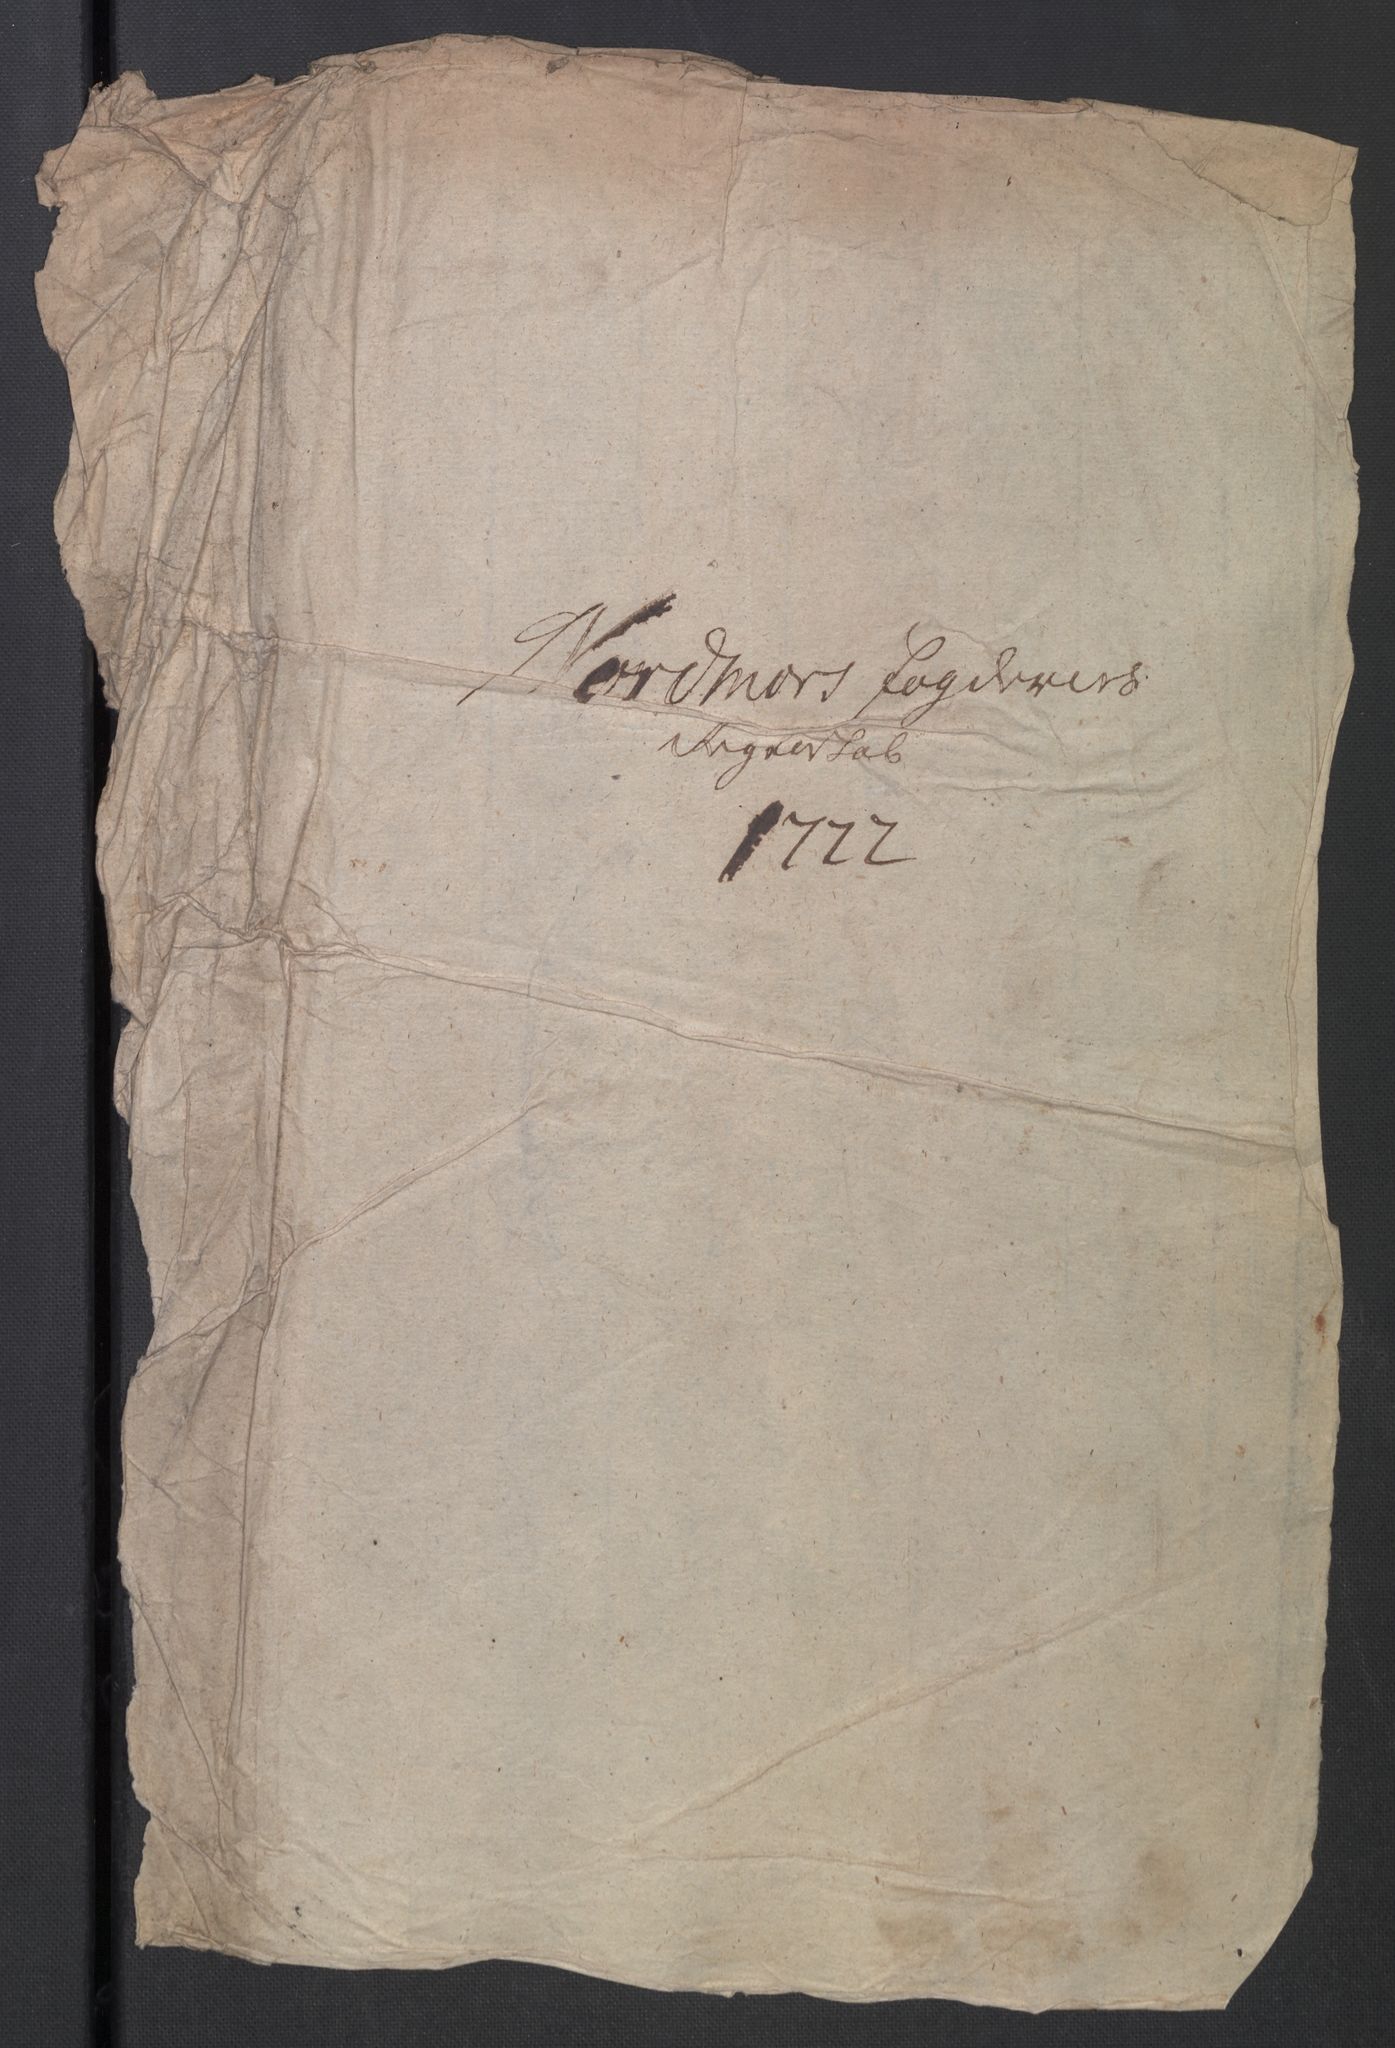 Nordmors fogderiers
Regnerskab
1722